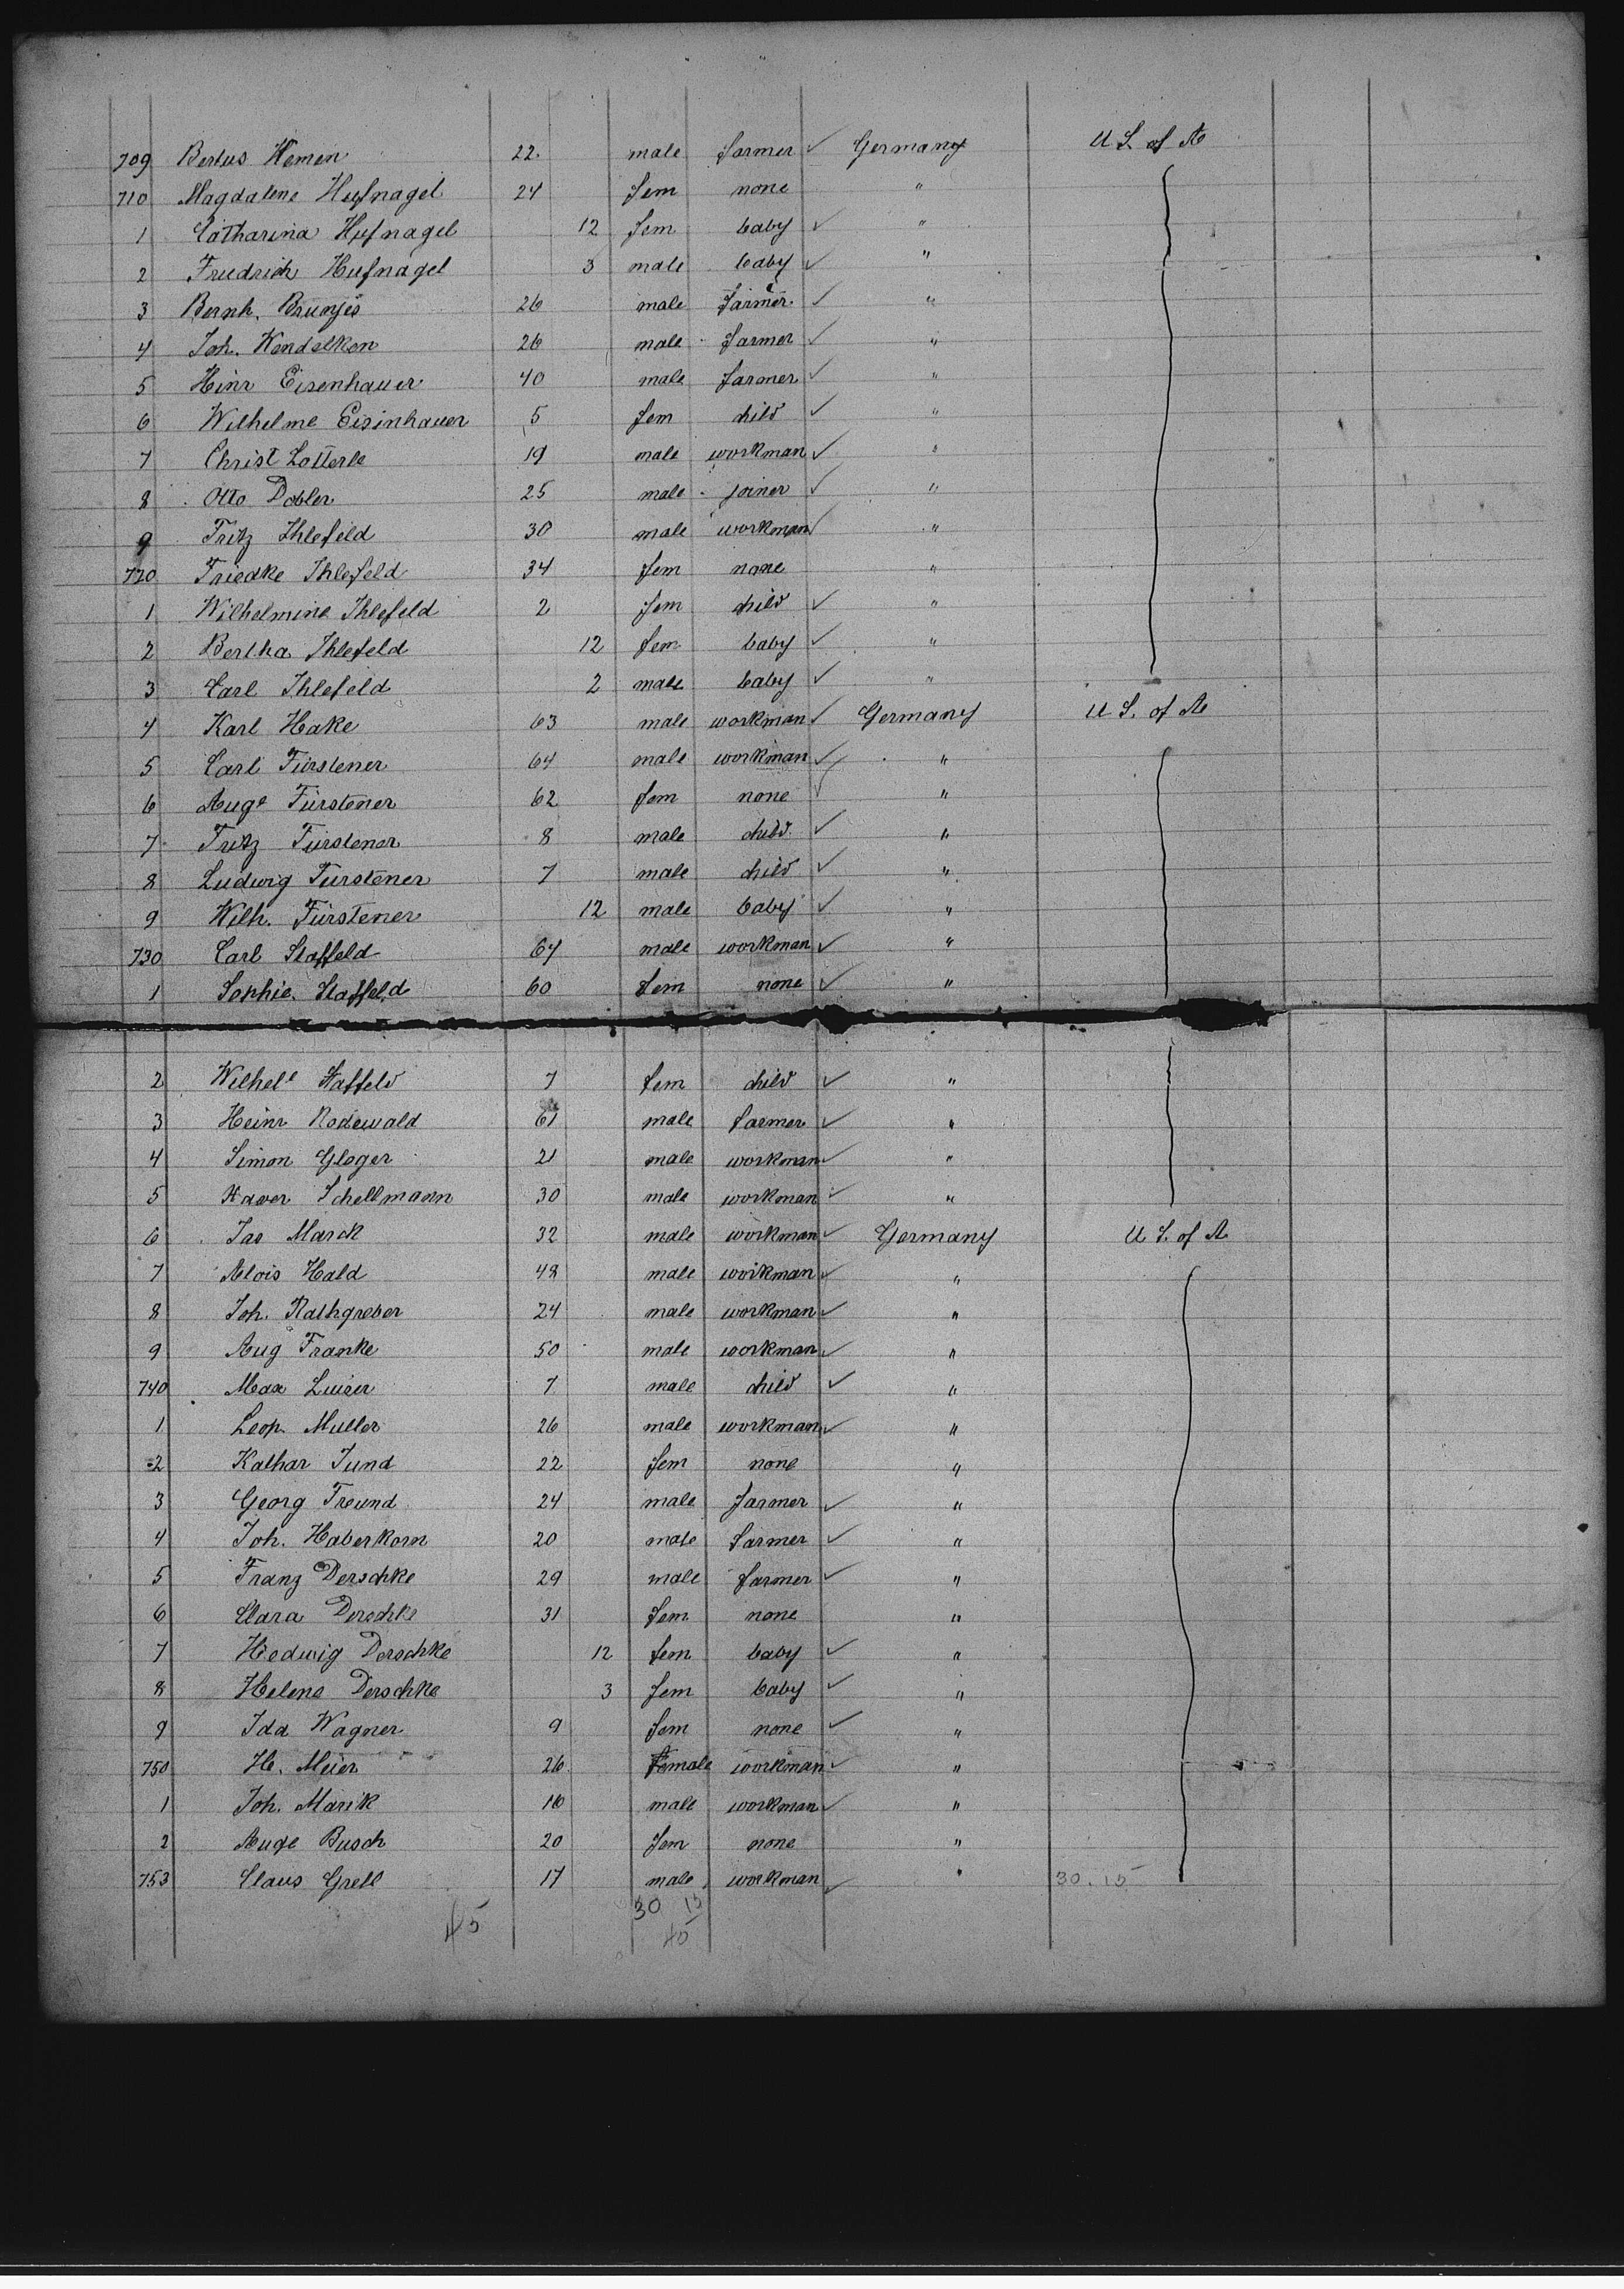 709 Bertus Hemen 22 male farmer ✓ Germany U S. of A
710 Magdalene Hufnagel 24 fem none "
1 Catharina Hufnagel 12 fem baby ✓ "
2 Friedrich Hufnagel 3 male baby ✓ "
3 Bernh. Brunjes 26 male farmer ✓ "
4 Joh. Wendelken 26 male farmer ✓ "
5 Hinr Eisenhauer 40 male farmer ✓ "
6 Wilhelme Eisinhauer 5 fem child ✓ "
7 Christ Lotterle 19 male workman ✓ "
8 Otto Dobler 25 male joiner ✓ "
9 Fritz Ihlefeld 30 male workman ✓ "
720 Friedke Ihlefeld 34 fem none "
1 Wilhelmine Ihlefeld 2 fem child ✓ "
2 Bertha Ihlefeld 12 fem baby ✓ "
3 Carl Ihlefeld 2 male baby ✓ "
4 Karl Hake 63 male workman ✓ Germany U S. of A
5 Carl Fürstener 64 male workman ✓ "
6 Auge Fürstener 62 fem none ✓ "
7 Fritz Fürstener 8 male child ✓ "
8 Ludwig Furstener 7 male child ✓ "
9 Wilh. Fürstener 12 male baby ✓ "
730 Carl Staffeld 64 male workman ✓ "
1 Sophie Staffeld 60 fem none ✓ "
2 Wilhele Staffeld 7 fem child ✓ "
3 Heinr Rodewald 61 male farmer ✓ "
4 Simon Gloger 21 male workman ✓ "
5 Xaver Schellmann 30 male workman ✓ "
6 Jas Marck 32 male workman ✓ Germany U S. of A
7 Alois Hald 48 male workman ✓ "
8 Joh. Rathgreber 24 male workman ✓ "
9 Aug Franke 50 male workman ✓ "
740 Max Luiser 7 male child ✓ "
1 Leop. Muller 26 male workman ✓ "
2 Kathar Jund 22 fem none "
3 Georg Freund 24 male farmer ✓ "
4 Joh. Haberkorn 20 male farmer ✓ "
5 Franz Derschke 29 male farmer ✓ "
6 Clara Derschke 31 fem none "
7 Hedwig Derschke 12 fem baby ✓ "
8 Helene Derschke 3 fem baby ✓ "
9 Ida Wagner 9 fem none ✓ "
750 H. Meier 26 Female workman ✓ "
1 Joh. Marik 16 male workman ✓ "
2 Auge Busch 20 fem none "
753 Claus Grell 17 male workman ✓ " 30. 15
45 30 15
45